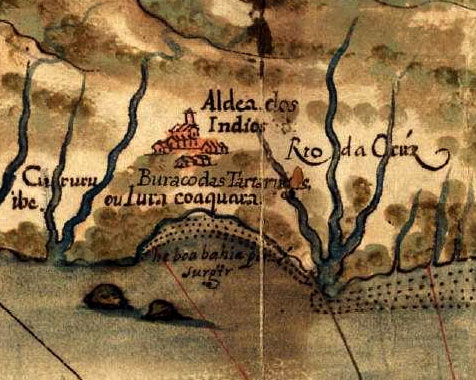 Aldea dos
Indios
Rio da Crúz
Cururu
ibe
Buraco das Tartarugas,
ou Iura coaquara
he boa bahia
surgir